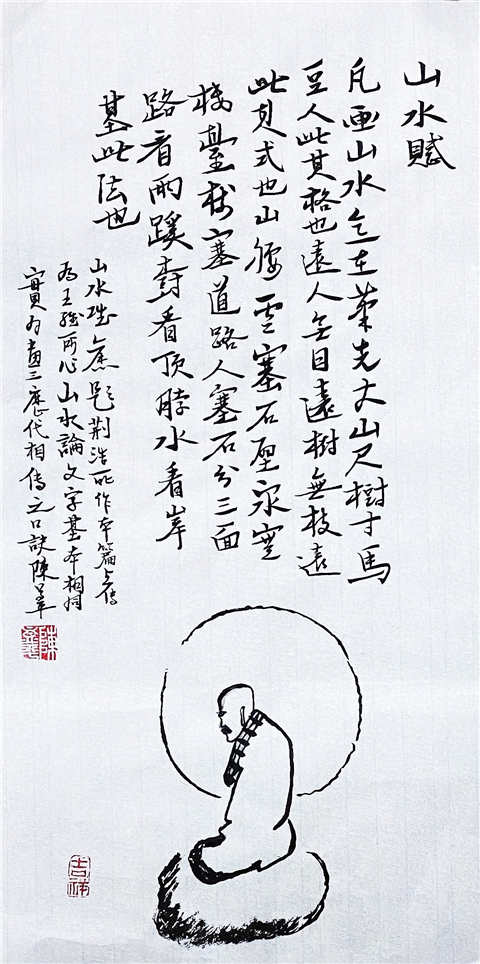 山水賦
凡画山水意在筆先丈山尺樹寸馬
豆人此其格也遠人無目遠樹無枝遠
此其式也山腰雲塞石壁泉塞
樓臺樹塞道路人塞石分三面
路看兩蹊樹看頂脖水看岸
基此法也
山水賦舊題荊浩所作本篇与傳
为王維所作山水論文字基本相同
實为畫工歷代相傳之口訣陳
吉祥